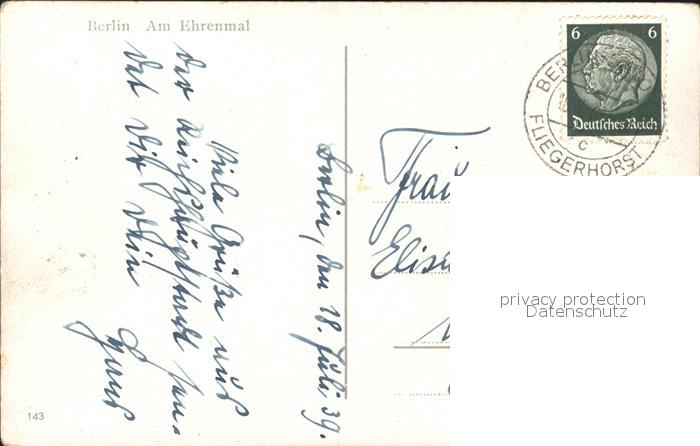 Berlin Am Ehrenmal
6 6
Deutsches Reich
BER
FLIEGERHORST
c
Berlin, den 18. Juli 39.
Viele Grüße aus
der Reichshauptstadt sen-
det Dir Dein
Frau
Elis
privacy protection
Datenschutz
143